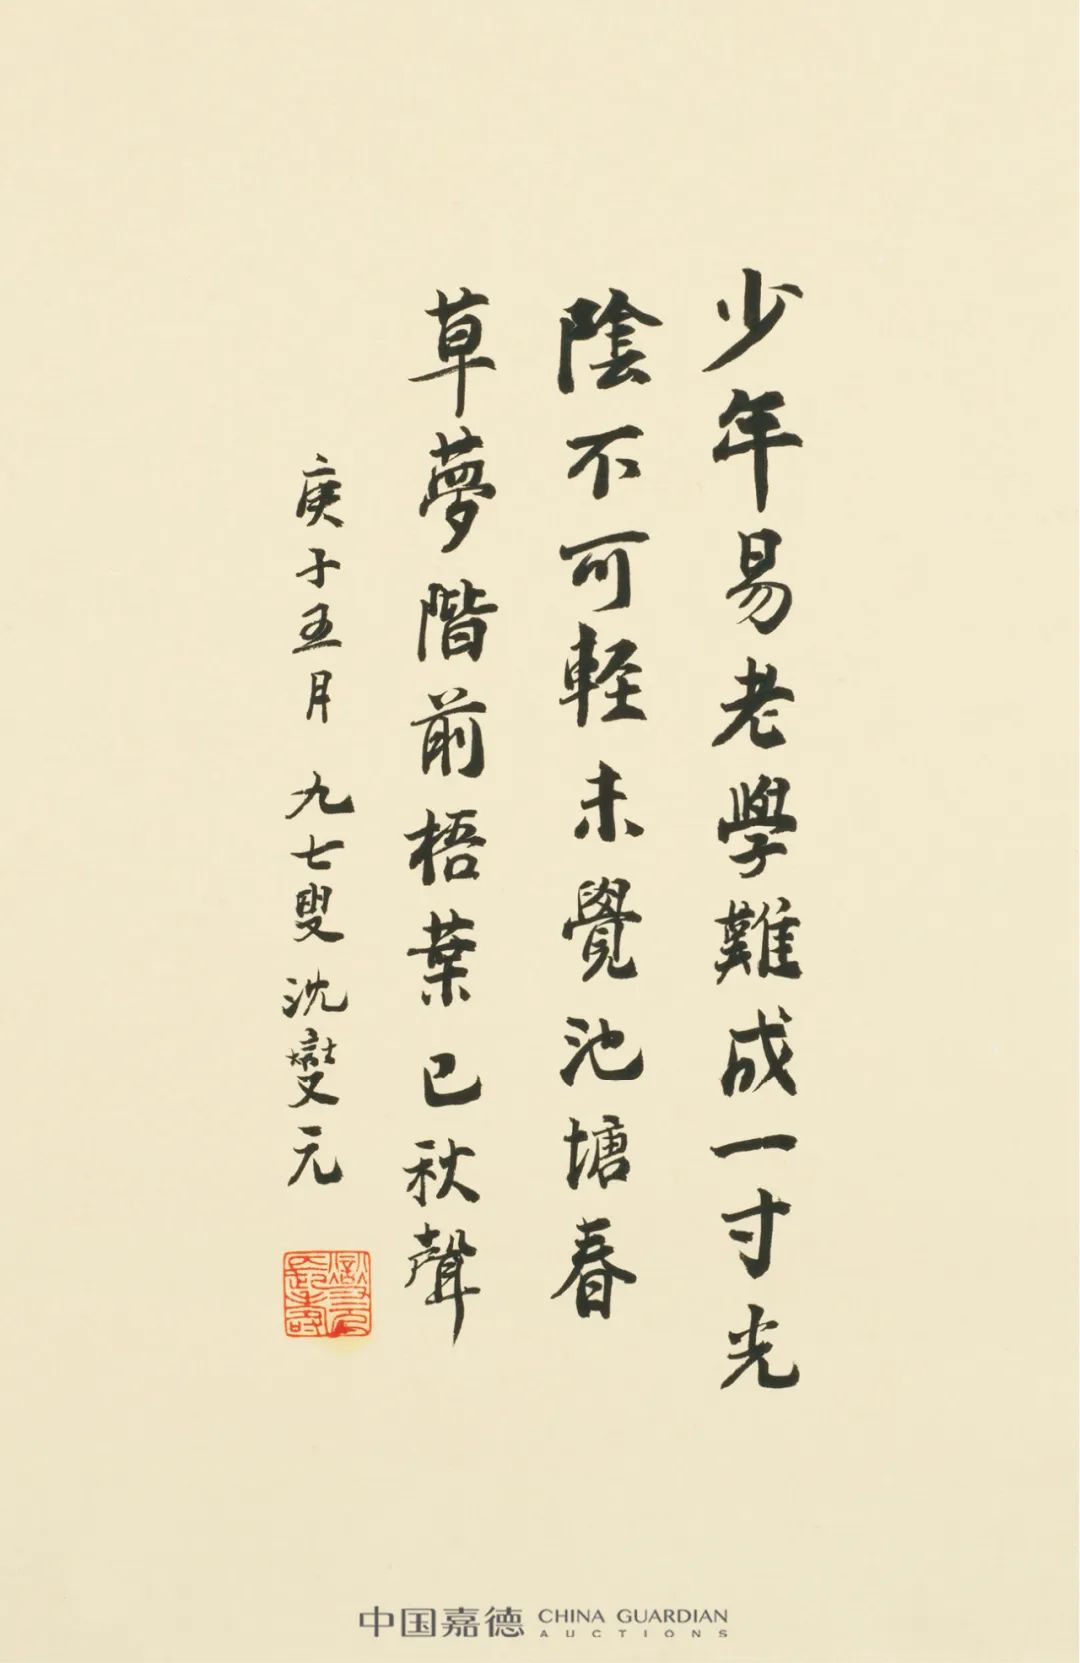 少年易老學難成一寸光
陰不可輕未覺池塘春
草夢階前梧葉已秋聲
庚子五月 九七叟沈燮元
燮元長壽
中国嘉德 CHINA GUARDIAN
AUCTIONS